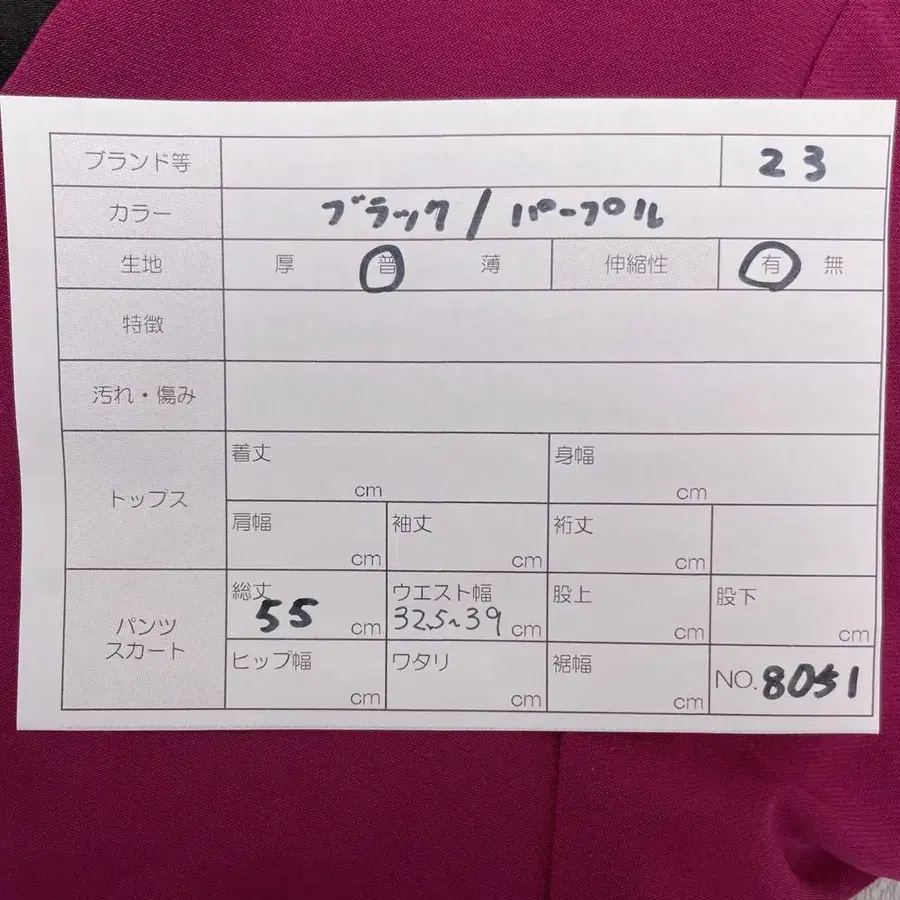 ブランド等 23
カラー ブラック/パープル
生地 厚 普 薄 伸縮性 有 無
特徴
汚れ・傷み
トップス
着丈 cm 身幅 cm
肩幅 cm 袖丈 cm 裄丈 cm
パンツ
スカート
総丈 55 cm ウエスト幅 32.5~39 cm 股上 cm 股下 cm
ヒップ幅 cm ワタリ cm 裾幅 cm NO. 8051